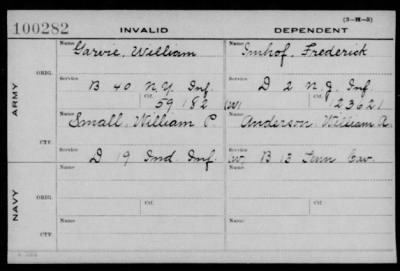 (3-H-3)
100282 INVALID DEPENDENT
Name Garvie, William Name Imhof, Frederick
ARMY ORIG. Service B 40 N.Y. Inf. Service D 2 N.J. Inf.
Ctf. 59182 (W) Ctf. 23621
Name Small, William P. Name Anderson, William A.
CTF. Service D 19 Ind. Inf. W. B 13 Tenn Cav.
NAVY ORIG. Name Ctf. Name Ctf.
CTF. Name Name